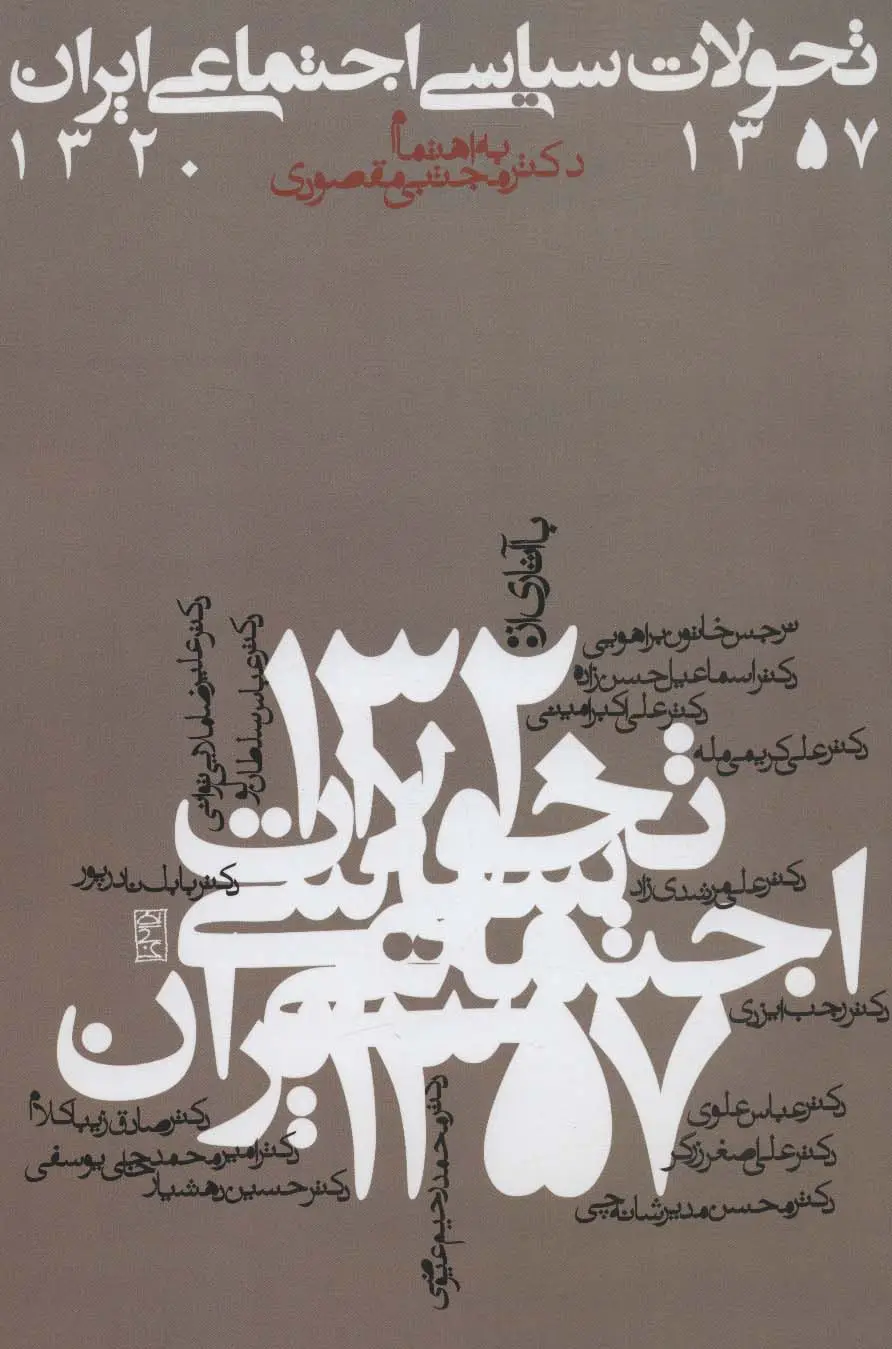 تحولات سیاسی اجتماعی ایران
۱۳۲۰ ۱۳۵۷
به اهتمام
دکتر مجتبی مقصودی
با آثاری از:
نرجس خاتون براهویی
دکتر اسماعیل حسن زاده
دکتر علی اکبر امینی
دکتر علی کریمی مله
دکتر علیرضا ملایی توانی
دکتر عباس سلطان پور
دکتر علی مرشدی زاد
دکتر بابک نادرپور
دکتر رجب ایزدی
دکتر عباس علوی
دکتر علی اصغر زرگر
دکتر محسن مدیر شانه چی
دکتر صادق زیباکلام
دکتر امیر محمد حاجی یوسفی
دکتر حسین رهشیار
دکتر محمد رحیم عیوضی
۱۳۲۰
تحولات
سیاسی
اجتماعی
ایران
۱۳۵۷